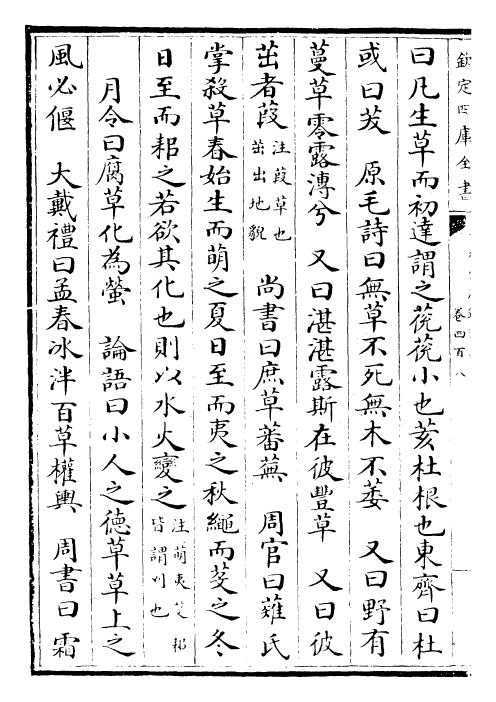 欽定四庫全書
卷四百八
曰凡生草而初達謂之莌莌小也荄杜根也東齊曰杜
或曰茇　原毛詩曰無草不死無木不萎　又曰野有
蔓草零露漙兮　又曰湛湛露斯在彼豐草　又曰彼
茁者葭注葭草也茁出地貌　尚書曰庶草蕃蕪　周官曰薙氏
掌殺草春始生而萌之夏日至而夷之秋繩而芟之冬
日至而耜之若欲其化也則以水火變之注萌夷芟耜皆謂刈也
月令曰腐草化為螢　論語曰小人之德草草上之
風必偃　大戴禮曰孟春冰泮百草權輿　周書曰霜